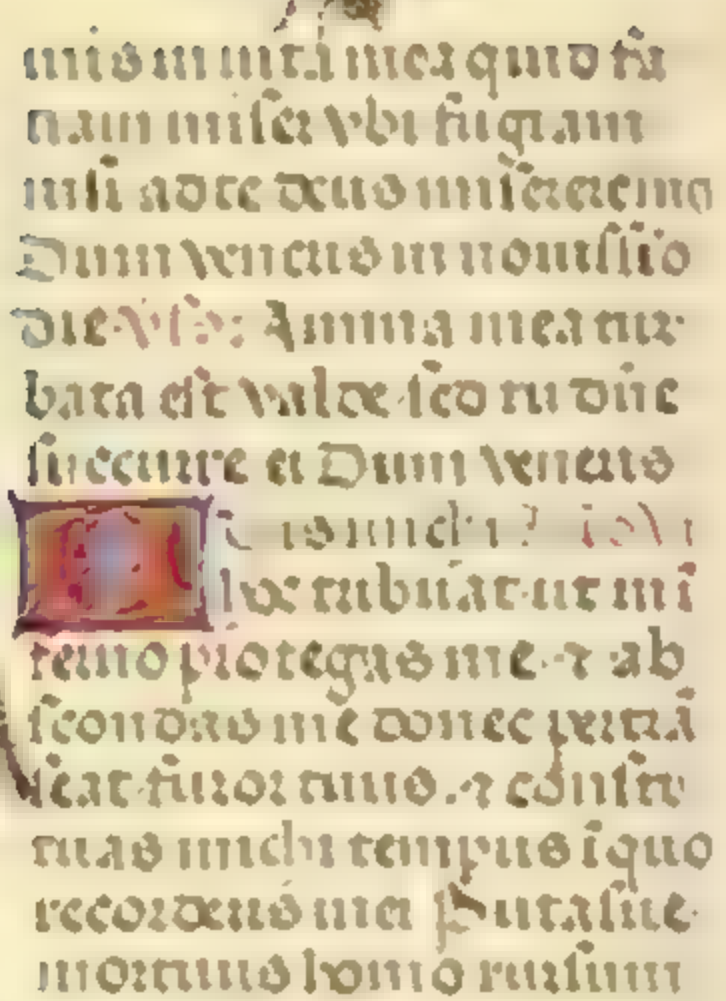 mis in uita mea quid fa
nam miser vbi fugiam
nisi ad te deus miserere me
Dum veneris in nouissio
die Vs: Anima mea tur
bata est valde sed tu dne
succurre ei Dum veneris
Quis michi? iob
hoc tribuat ut in i
ferno protegas me ⁊ ab
scondas me donec pertrā
seat furor tuus. ⁊ consti
tuas michi tempus ī quo
recorderis mei Putasne
mortuus homo rursum